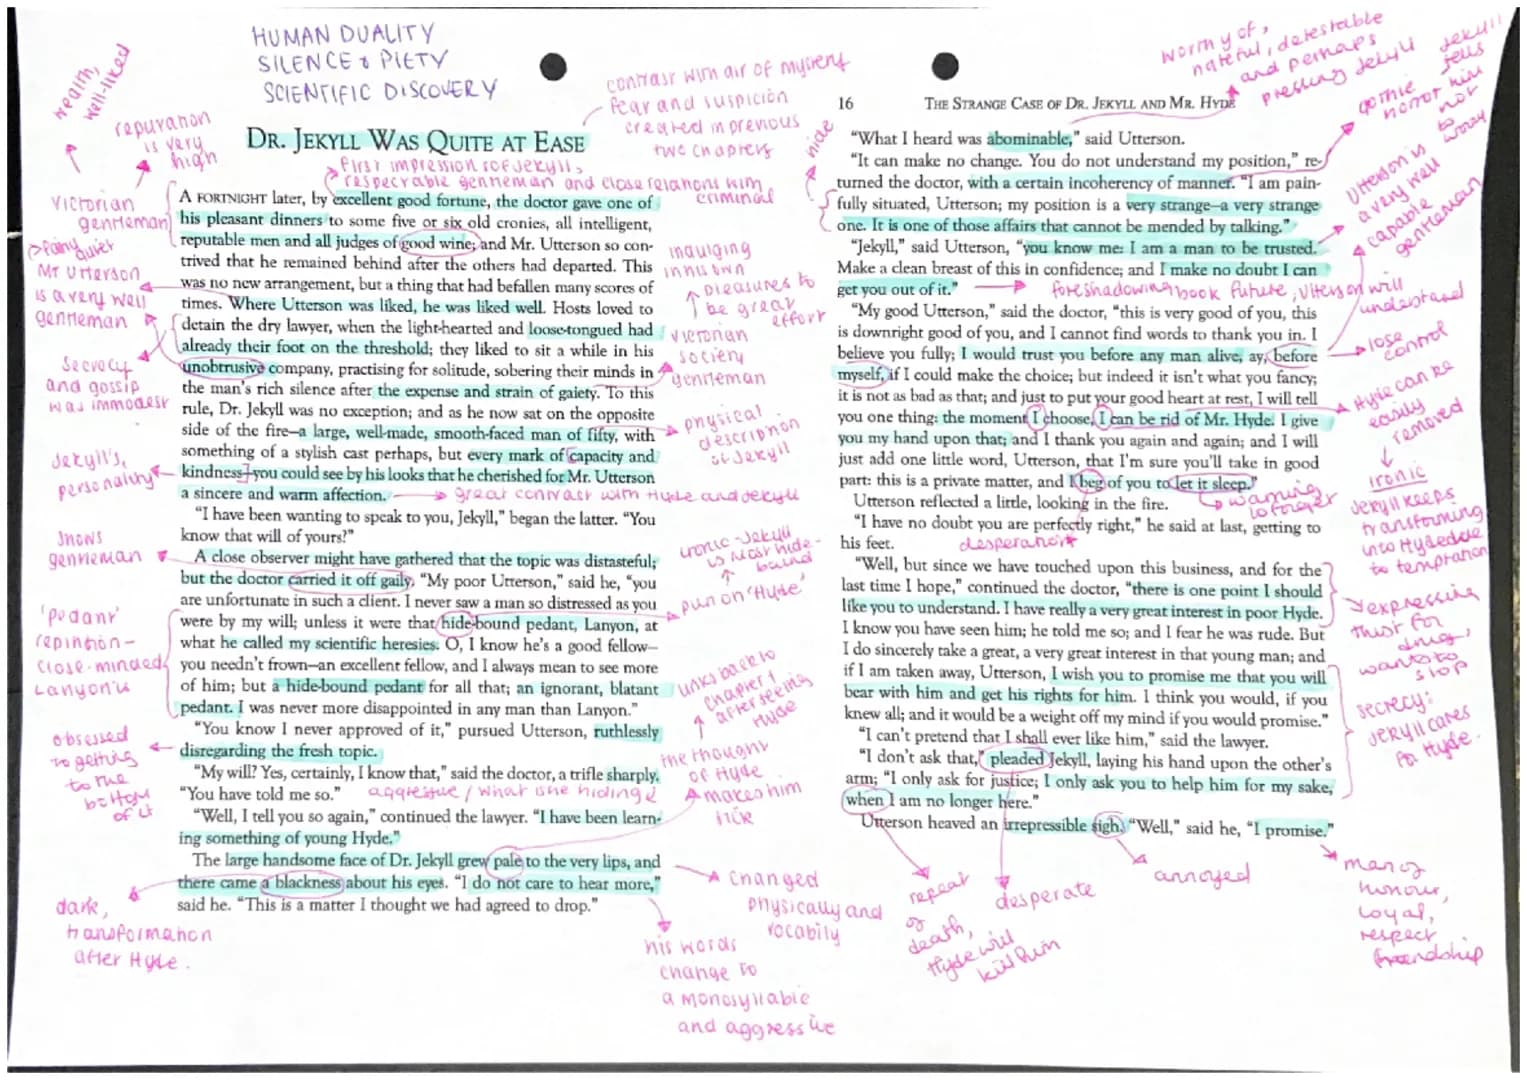 HUMAN DUALITY
SILENCE & PIETY
SCIENTIFIC DISCOVERY
wealth,
well-liked
reputation
is very
high
contrast with air of mystery
fear and suspicion
created in previous
two chapters
DR. JEKYLL WAS QUITE AT EASE
first impression of Jekyll,
respectable gentleman and close relations with
criminal
A FORTNIGHT later, by excellent good fortune, the doctor gave one of
his pleasant dinners to some five or six old cronies, all intelligent,
reputable men and all judges of good wine; and Mr. Utterson so con-
trived that he remained behind after the others had departed. This
was no new arrangement, but a thing that had befallen many scores of
times. Where Utterson was liked, he was liked well. Hosts loved to
detain the dry lawyer, when the light-hearted and loose-tongued had
already their foot on the threshold; they liked to sit a while in his
unobtrusive company, practising for solitude, sobering their minds in
the man's rich silence after the expense and strain of gaiety. To this
rule, Dr. Jekyll was no exception; and as he now sat on the opposite
side of the fire—a large, well-made, smooth-faced man of fifty, with
something of a stylish cast perhaps, but every mark of capacity and
kindness—you could see by his looks that he cherished for Mr. Utterson
a sincere and warm affection.
great contrast with Hyde and Jekyll
"I have been wanting to speak to you, Jekyll," began the latter. "You
know that will of yours?"
A close observer might have gathered that the topic was distasteful;
but the doctor carried it off gaily. "My poor Utterson," said he, "you
are unfortunate in such a client. I never saw a man so distressed as you
were by my will; unless it were that hide-bound pedant, Lanyon, at
what he called my scientific heresies. O, I know he's a good fellow—
you needn't frown—an excellent fellow, and I always mean to see more
of him; but a hide-bound pedant for all that; an ignorant, blatant
pedant. I was never more disappointed in any man than Lanyon."
"You know I never approved of it," pursued Utterson, ruthlessly
disregarding the fresh topic.
"My will? Yes, certainly, I know that," said the doctor, a trifle sharply.
"You have told me so."
"Well, I tell you so again," continued the lawyer. "I have been learn-
ing something of young Hyde."
The large handsome face of Dr. Jekyll grew pale to the very lips, and
there came a blackness about his eyes. "I do not care to hear more,"
said he. "This is a matter I thought we had agreed to drop."
Victorian
gentleman
quiet
Mr Utterson
is a very well
gentleman
Secrecy
and gossip
was immodest
Jekyll's,
personality
shows
gentleman
'pedant'
close-minded
obsessed
to getting
to the
bottom
of it
dark,
transformation
after Hyde.
indulging
in his own
pleasures to
be great
effort
Victorian
society
gentleman
physical
description
of Jekyll
ironic - Jekyll
is most hide-
bound
pun on 'Hyde'
links back to
chapter 1
after seeing
Hyde
the thought
of Hyde
makes him
changed
physically and
vocabily
his words
change to
a monosyllabic
and aggressive
16 THE STRANGE CASE OF DR. JEKYLL AND MR. HYDE
worthy of,
hateful, detestable
and perhaps
pressing Jekyll
"What I heard was abominable," said Utterson.
"It can make no change. You do not understand my position," re-
turned the doctor, with a certain incoherency of manner. "I am pain-
fully situated, Utterson; my position is a very strange—a very strange
one. It is one of those affairs that cannot be mended by talking."
"Jekyll," said Utterson, "you know me: I am a man to be trusted.
Make a clean breast of this in confidence; and I make no doubt I can
get you out of it."
foreshadowing book future, Utterson will
understand
"My good Utterson," said the doctor, "this is very good of you, this
is downright good of you, and I cannot find words to thank you in. I
believe you fully; I would trust you before any man alive, ay, before
myself, if I could make the choice; but indeed it isn't what you fancy;
it is not as bad as that; and just to put your good heart at rest, I will tell
you one thing: the moment I choose, I can be rid of Mr. Hyde. I give
you my hand upon that; and I thank you again and again; and I will
just add one little word, Utterson, that I'm sure you'll take in good
part: this is a private matter, and I beg of you to let it sleep."
Utterson reflected a little, looking in the fire.
"I have no doubt you are perfectly right," he said at last, getting to
his feet.
desperation
"Well, but since we have touched upon this business, and for the
last time I hope," continued the doctor, "there is one point I should
like you to understand. I have really a very great interest in poor Hyde.
I know you have seen him; he told me so; and I fear he was rude. But
I do sincerely take a great, a very great interest in that young man; and
if I am taken away, Utterson, I wish you to promise me that you will
bear with him and get his rights for him. I think you would, if you
knew all; and it would be a weight off my mind if you would promise."
"I can't pretend that I shall ever like him," said the lawyer.
"I don't ask that," pleaded Jekyll, laying his hand upon the other's
arm; "I only ask for justice; I only ask you to help him for my sake,
when I am no longer here."
Utterson heaved an irrepressible sigh. "Well," said he, "I promise."
hide
gothic
Jekyll
tells
him
not
to worry
Utterson is
a very well
capable
gentleman
lose
control
Hyde can be
easily
removed
ironic
Jekyll keeps
transforming
into Hyde due
to temptation
warning
expressing
thirst for
drug,
wants to
stop
secrecy:
Jekyll cares
for Hyde.
repeat
of
death,
Hyde will
kill him
desperate
annoyed
man of
honour,
loyal,
respect
friendship